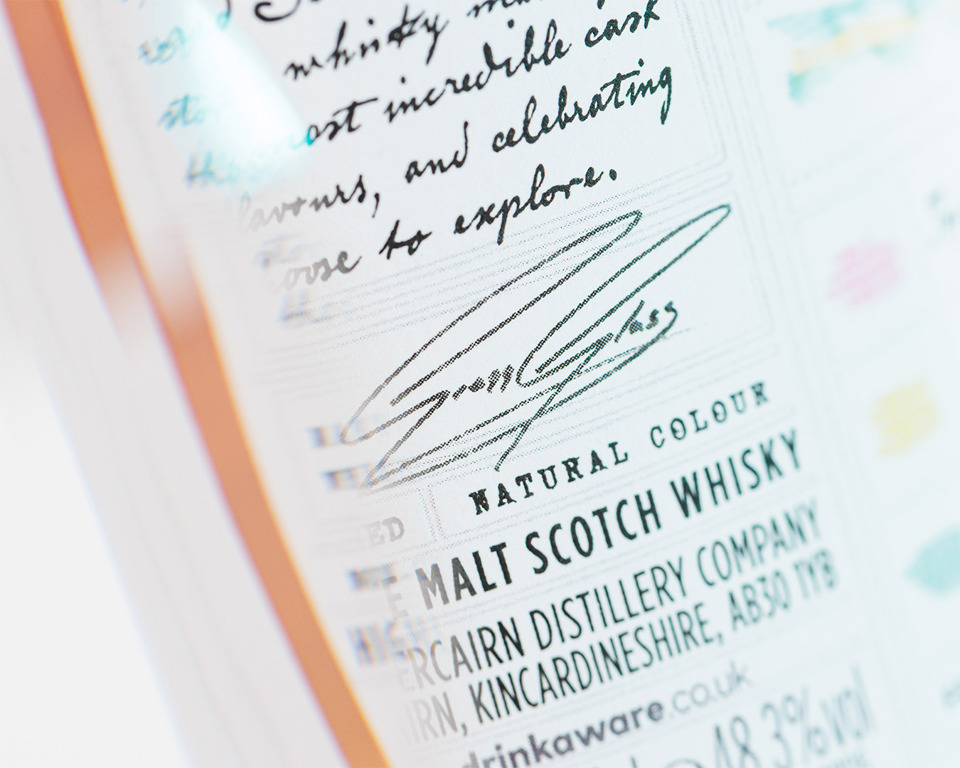 whisky
most incredible cask
flavours, and celebrating
to explore.
Gregg Glass
NATURAL COLOUR
ED
MALT SCOTCH WHISKY
ERCAIRN DISTILLERY COMPANY
IRN, KINCARDINESHIRE, AB30 1YB
drinkaware.co.uk
48.3%vol